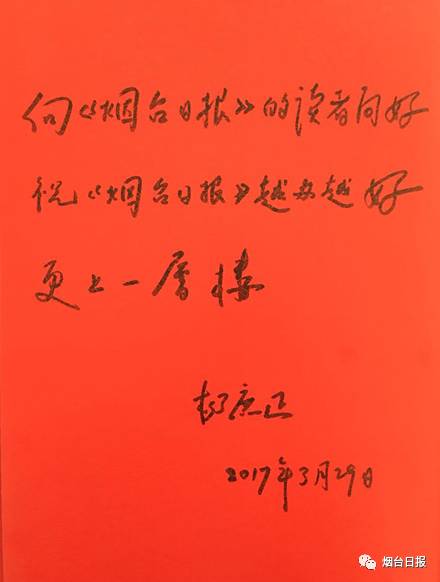 向《烟台日报》的读者问好
祝《烟台日报》越办越好
更上一层楼
2017年3月29日
烟台日报